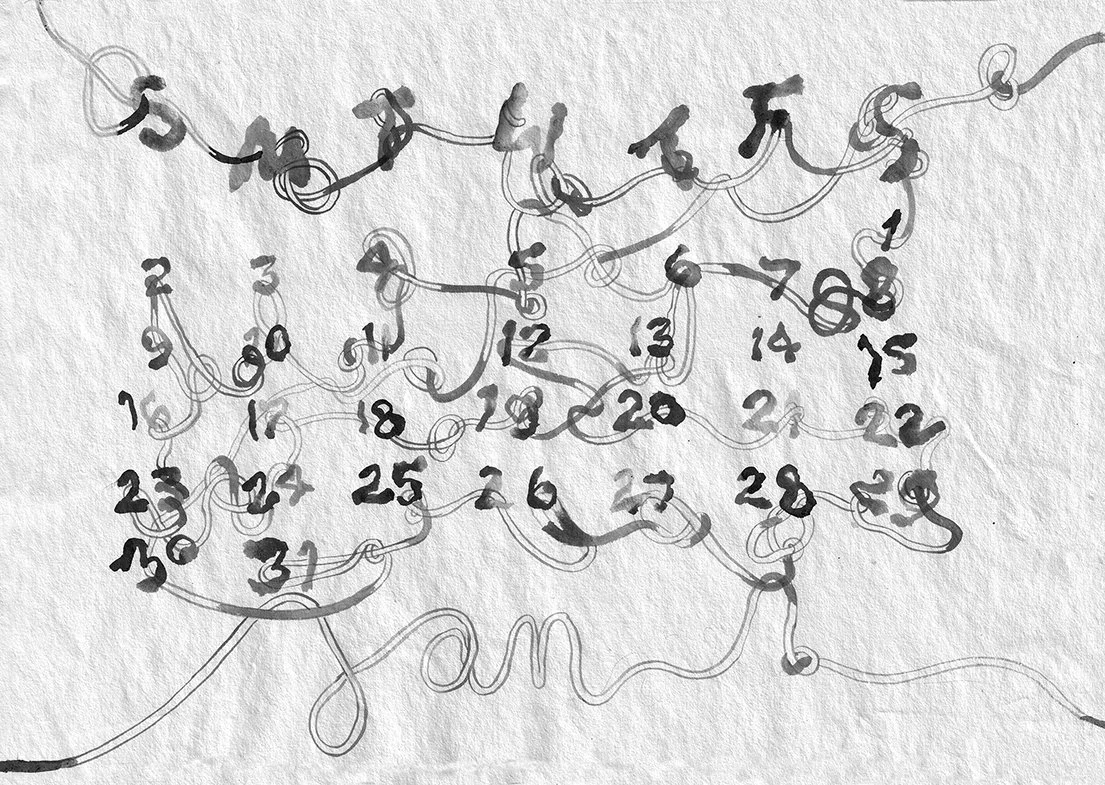 S M T W T F S
1
2 3 4 5 6 7 8
9 10 11 12 13 14 15
16 17 18 19 20 21 22
23 24 25 26 27 28 29
30 31
Jan